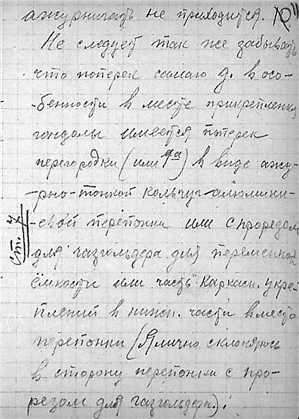 ажурничать не приходится.
Не следует так же забывать
что поперек самого д. в осо-
бенности в месте прикрепления
гондолы имеется поперек
перегородки (или два) в виде ажу-
рно-тонкой кольчуг-алюмини-
евой перепонки или с прорезом
для газгольдера для переменной
ёмкости или часть каркасн. укре
плений в нижн. части вместо
перепонки (Я лично склоняюсь
в сторону перепонки с про-
резом для газгольдера);